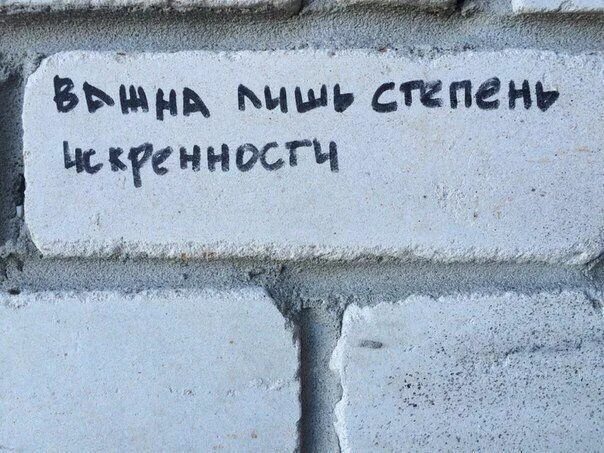 важна лишь степень
искренности